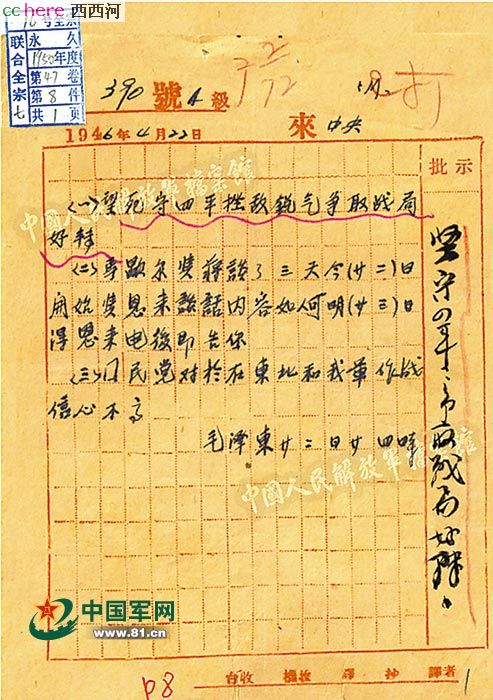 cchere 西西河
联合全宗
永久
1950年度
第47卷
第8件
共1页
七
390 號 A 級
1946年4月22日 來 中央
批示
(一)望死守四平挫敌銳气争取战局
好转
(二)馬歇尔雙蔣談了三天今(廿二)日
開始雙恩来談話内容如何明(廿三)日
得恩来电後即告你
(三)国民党对於在東北和我軍作战
信心不高
毛澤東廿二日廿四時
坚守四平争取战局好转
中国人民解放军档案馆
中国人民解放军档案馆
中国军网
www.81.cn
台收 機校 譯 抄 譯者
P8
1